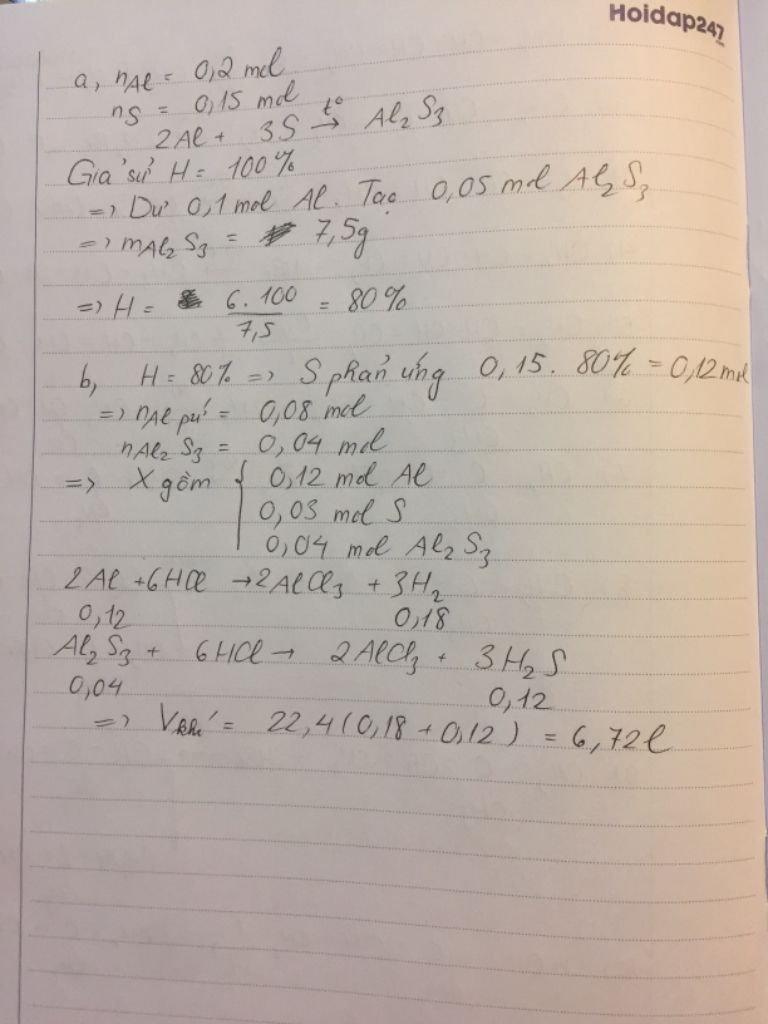 Hoidap247
a, nAl = 0,2 mol
nS = 0,15 mol
2Al + 3S t° → Al2S3
Giả sử H = 100%
=> Dư 0,1 mol Al. Tạo 0,05 mol Al2S3
=> mAl2S3 = 7,5g
=> H = 6.100 / 7,5 = 80%
b, H = 80% => S phản ứng 0,15. 80% = 0,12 mol
=> nAl pứ = 0,08 mol
nAl2S3 = 0,04 mol
=> X gồm { 0,12 mol Al
0,03 mol S
0,04 mol Al2S3
2Al + 6HCl → 2AlCl3 + 3H2
0,12 0,18
Al2S3 + 6HCl → 2AlCl3 + 3H2S
0,04 0,12
=> Vkhí = 22,4(0,18 + 0,12) = 6,72l